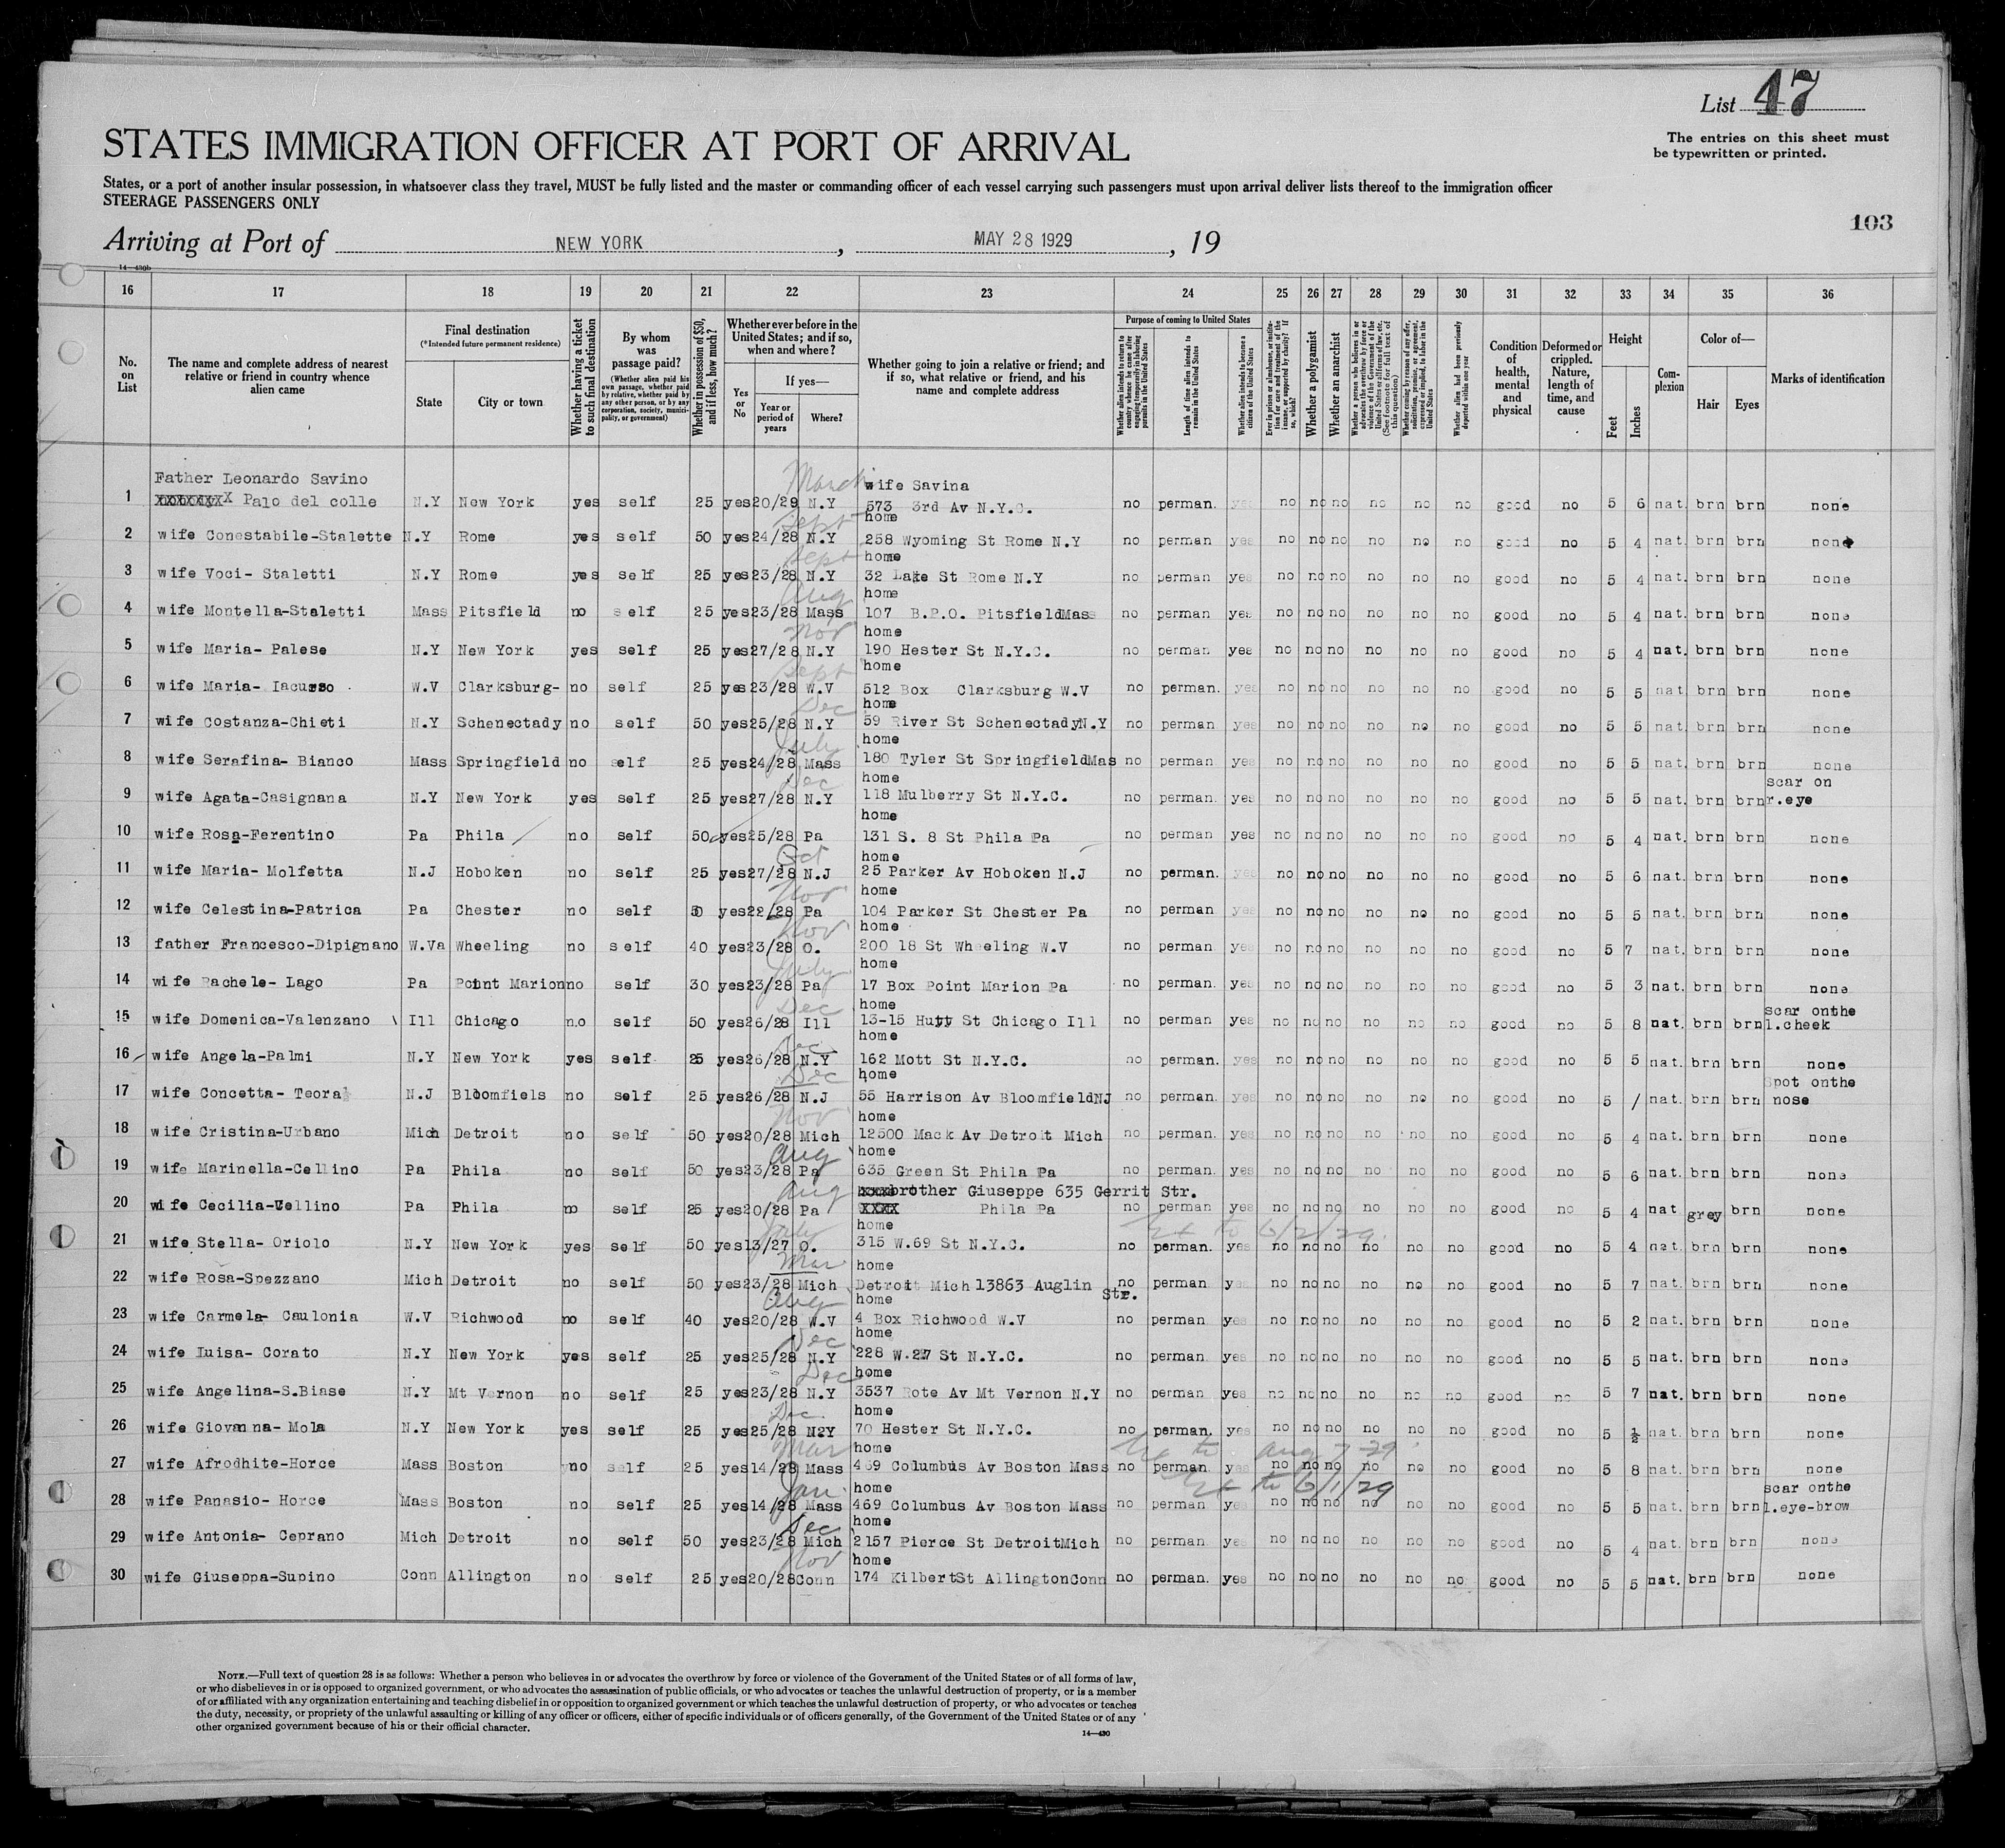 List 47
The entries on this sheet must
be typewritten or printed.
STATES IMMIGRATION OFFICER AT PORT OF ARRIVAL
States, or a port of another insular possession, in whatsoever class they travel, MUST be fully listed and the master or commanding officer of each vessel carrying such passengers must upon arrival deliver lists thereof to the immigration officer
STEERAGE PASSENGERS ONLY
103
Arriving at Port of NEW YORK, MAY 28 1929, 19
14—430b
16 17 18 19 20 21 22 23 24 25 26 27 28 29 30 31 32 33 34 35 36
No. on List
The name and complete address of nearest relative or friend in country whence alien came
Final destination
(*Intended future permanent residence)
State
City or town
Whether having a ticket to such final destination
By whom was passage paid?
(Whether alien paid his own passage, whether paid by relative, whether paid by any other person, or by any corporation, society, municipality, or government)
Whether in possession of $50, and if less, how much?
Whether ever before in the United States; and if so, when and where?
Yes or No
If yes—
Year or period of years
Where?
Whether going to join a relative or friend; and if so, what relative or friend, and his name and complete address
Purpose of coming to United States
Whether alien intends to return to country whence he came after engaging temporarily in laboring pursuits in the United States
Length of time alien intends to remain in the United States
Whether alien intends to become a citizen of the United States
Ever in prison or almshouse, or institution for care and treatment of the insane, or supported by charity? If so, which?
Whether a polygamist
Whether an anarchist
Whether a person who believes in or advocates the overthrow by force or violence of the Government of the United States or all forms of law, etc. (See footnote for full text of this question)
Whether coming by reason of any offer, solicitation, promise, or agreement, expressed or implied, to labor in the United States
Whether alien had been previously deported within one year
Condition of health, mental and physical
Deformed or crippled. Nature, length of time, and cause
Height
Feet
Inches
Complexion
Color of—
Hair
Eyes
Marks of identification
Father Leonardo Savino March wife Savina
1 Palo del colle N.Y New York yes self 25 yes 20/29 N.Y 573 3rd Av N.Y.C. no perman. yes no no no no no no good no 5 6 nat. brn brn none
Sept home
2 wife Conestabile-Stalette N.Y Rome yes self 50 yes 24/28 N.Y 258 Wyoming St Rome N.Y no perman yes no no no no no no good no 5 4 nat. brn brn none
Sept home
3 wife Voci- Staletti N.Y Rome yes self 25 yes 23/28 N.Y 32 Lake St Rome N.Y no perman yes no no no no no no good no 5 4 nat. brn brn none
Aug home
4 wife Montella-Staletti Mass Pitsfield no self 25 yes 23/28 Mass 107 B.P.O. Pitsfield Mass no perman yes no no no no no no good no 5 4 nat. brn brn none
Nov home
5 wife Maria- Palese N.Y New York yes self 25 yes 27/28 N.Y 190 Hester St N.Y.C. no perman yes no no no no no no good no 5 4 nat. brn brn none
Sept home
6 wife Maria- Iacurso W.V Clarksburg- no self 25 yes 23/28 W.V 512 Box Clarksburg W.V no perman. yes no no no no no no good no 5 5 nat brn brn none
Dec home
7 wife Costanza-Chieti N.Y Schenectady no self 50 yes 25/28 N.Y 59 River St Schenectady N.Y no perman yes no no no no no no good no 5 5 nat. brn brn none
July home
8 wife Serafina- Bianco Mass Springfield no self 25 yes 24/28 Mass 180 Tyler St Springfield Mas no perman yes no no no no no no good no 5 5 nat. brn brn none
Dec home scar on
9 wife Agata-Casignana N.Y New York yes self 25 yes 27/28 N.Y 118 Mulberry St N.Y.C. no perman. yes no no no no no no good no 5 5 nat. brn brn r.eye
home
10 wife Rosa-Ferentino Pa Phila no self 50 yes 25/28 Pa 131 S. 8 St Phila Pa no perman yes no no no no no no good no 5 4 nat. brn brn none
Oct home
11 wife Maria- Molfetta N.J Hoboken no self 25 yes 27/28 N.J 25 Parker Av Hoboken N.J no perman. yes no no no no no no good no 5 6 nat. brn brn none
Nov home
12 wife Celestina-Patrica Pa Chester no self 50 yes 22/28 Pa 104 Parker St Chester Pa no perman yes no no no no no no good no 5 5 nat. brn brn none
Nov home
13 father Francesco-Dipignano W.Va Wheeling no self 40 yes 23/28 O. 200 18 St Wheeling W.V no perman yes no no no no no no good no 5 7 nat. brn brn none
July home
14 wife Rachele- Lago Pa Point Marion no self 30 yes 23/28 Pa 17 Box Point Marion Pa no perman. yes no no no no no no good no 5 3 nat. brn brn none
Dec home scar onthe
15 wife Domenica-Valenzano Ill Chicago no self 50 yes 26/28 Ill 13-15 Hutt St Chicago Ill no perman yes no no no no no no good no 5 8 nat. brn brn l.cheek
Dec home
16 wife Angela-Palmi N.Y New York yes self 25 yes 26/28 N.Y 162 Mott St N.Y.C. no perman. yes no no no no no no good no 5 5 nat. brn brn none
Dec home Spot onthe
17 wife Concetta- Teora N.J Bloomfiels no self 25 yes 26/28 N.J 55 Harrison Av Bloomfield NJ no perman. yes no no no no no no good no 5 / nat. brn brn nose
Nov home
18 wife Cristina-Urbano Mich Detroit no self 50 yes 20/28 Mich 12500 Mack Av Detroit Mich no perman yes no no no no no no good no 5 4 nat. brn brn none
Aug home
19 wife Marinella-Cellino Pa Phila no self 50 yes 23/28 Pa 635 Green St Phila Pa no perman. yes no no no no no no good no 5 6 nat. brn brn none
Aug brother Giuseppe 635 Gerrit Str.
20 wife Cecilia-Cellino Pa Phila no self 25 yes 20/28 Pa Phila Pa no perman yes no no no no no no good no 5 4 nat grey brn none
July home to 6/2/29.
21 wife Stella- Oriolo N.Y New York yes self 50 yes 13/27 O. 315 W.69 St N.Y.C. no perman. yes no no no no no no good no 5 4 nat. brn brn none
Mar home
22 wife Rosa-Spezzano Mich Detroit no self 50 yes 23/28 Mich Detroit Mich 13863 Auglin Str. no perman yes no no no no no no good no 5 7 nat. brn brn none
Aug home
23 wife Carmela- Caulonia W.V Richwood no self 40 yes 20/28 W.V 4 Box Richwood W.V no perman yes no no no no no no good no 5 2 nat. brn brn none
Dec home
24 wife Luisa- Corato N.Y New York yes self 25 yes 25/28 N.Y 228 W.27 St N.Y.C. no perman yes no no no no no no good no 5 5 nat. brn brn none
Dec home
25 wife Angelina-S.Biase N.Y Mt Vernon no self 25 yes 23/28 N.Y 3537 Rote Av Mt Vernon N.Y no perman yes no no no no no no good no 5 7 nat. brn brn none
Dec. home
26 wife Giovanna- Mola N.Y New York yes self 25 yes 25/28 N2Y 70 Hester St N.Y.C. no perman. yes no no no no no no good no 5 ½ nat. brn brn none
Mar home to aug 7-29
27 wife Afrodhite-Horce Mass Boston no self 25 yes 14/28 Mass 469 Columbus Av Boston Mass no perman. yes no no no no no no good no 5 8 nat. brn brn none
Jan. home to 6/1/29 scar onthe
28 wife Panasio- Horce Mass Boston no self 25 yes 14/28 Mass 469 Columbus Av Boston Mass no perman yes no no no no no no good no 5 5 nat. brn brn l.eye-brow
Dec home
29 wife Antonia- Ceprano Mich Detroit no self 50 yes 23/28 Mich 2157 Pierce St Detroit Mich no perman yes no no no no no no good no 5 4 nat. brn brn none
Nov home
30 wife Giuseppa-Supino Conn Allington no self 25 yes 20/28 Conn 174 Kilbert St Allington Conn no perman. yes no no no no no no good no 5 5 nat. brn brn none
NOTE.—Full text of question 28 is as follows: Whether a person who believes in or advocates the overthrow by force or violence of the Government of the United States or of all forms of law,
or who disbelieves in or is opposed to organized government, or who advocates the assassination of public officials, or who advocates or teaches the unlawful destruction of property, or is a member
of or affiliated with any organization entertaining and teaching disbelief in or opposition to organized government or which teaches the unlawful destruction of property, or who advocates or teaches
the duty, necessity, or propriety of the unlawful assaulting or killing of any officer or officers, either of specific individuals or of officers generally, of the Government of the United States or of any
other organized government because of his or their official character.
14—430